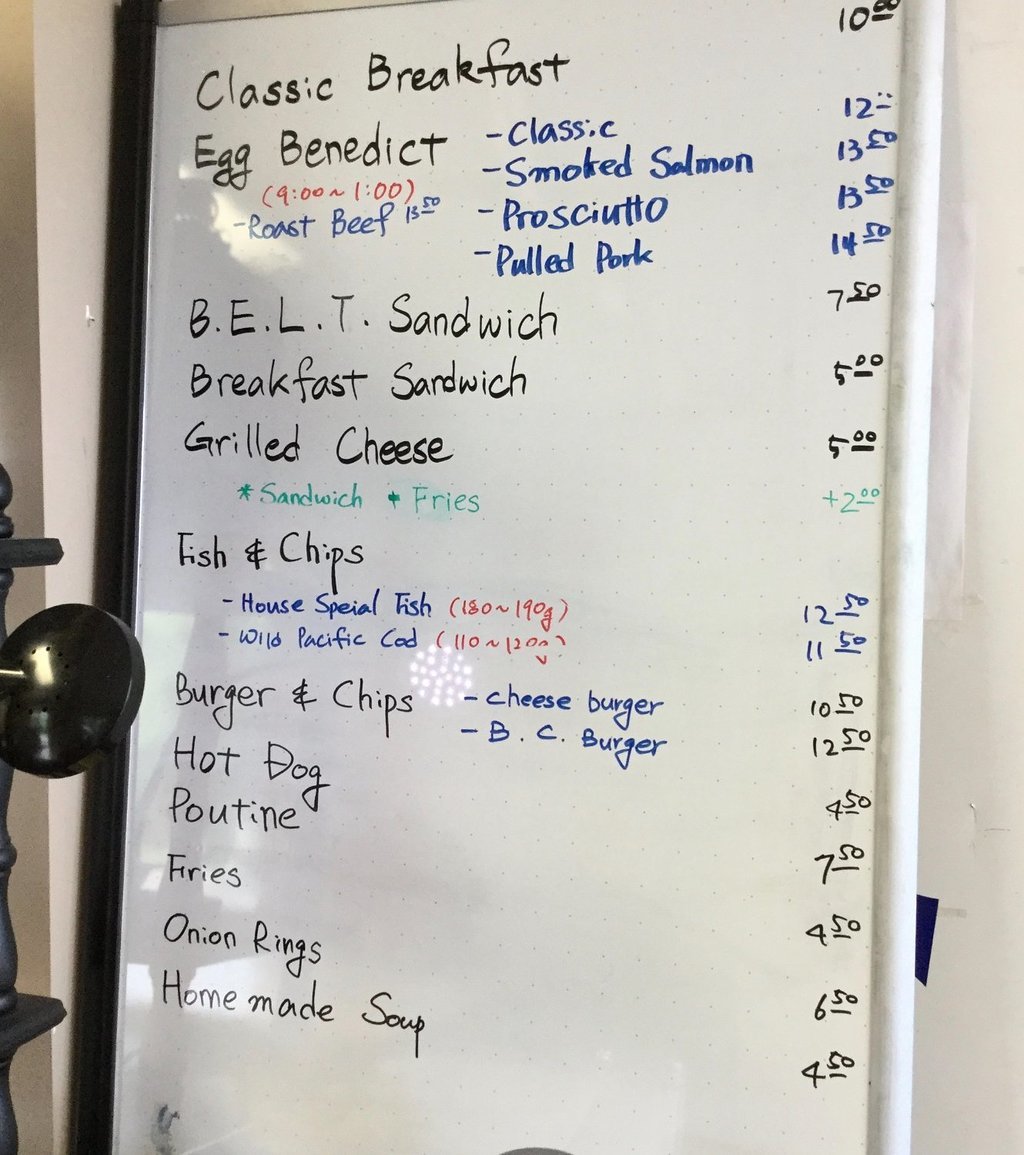 Classic Breakfast 10.00
Egg Benedict - Classic 12.-
(9:00~1:00) - Smoked Salmon 13.50
- Roast Beef 13.50 - Prosciutto 13.50
- Pulled Pork 14.50
B.E.L.T. Sandwich 7.50
Breakfast Sandwich 5.00
Grilled Cheese 5.00
* Sandwich + Fries +2.00
Fish & Chips
- House Speial Fish (180~190g) 12.50
- Wild Pacific Cod (110~120g) 11.50
Burger & Chips - cheese burger 10.50
- B.C. Burger 12.50
Hot Dog 4.50
Poutine 7.50
Fries 4.50
Onion Rings 6.50
Home made Soup 4.50